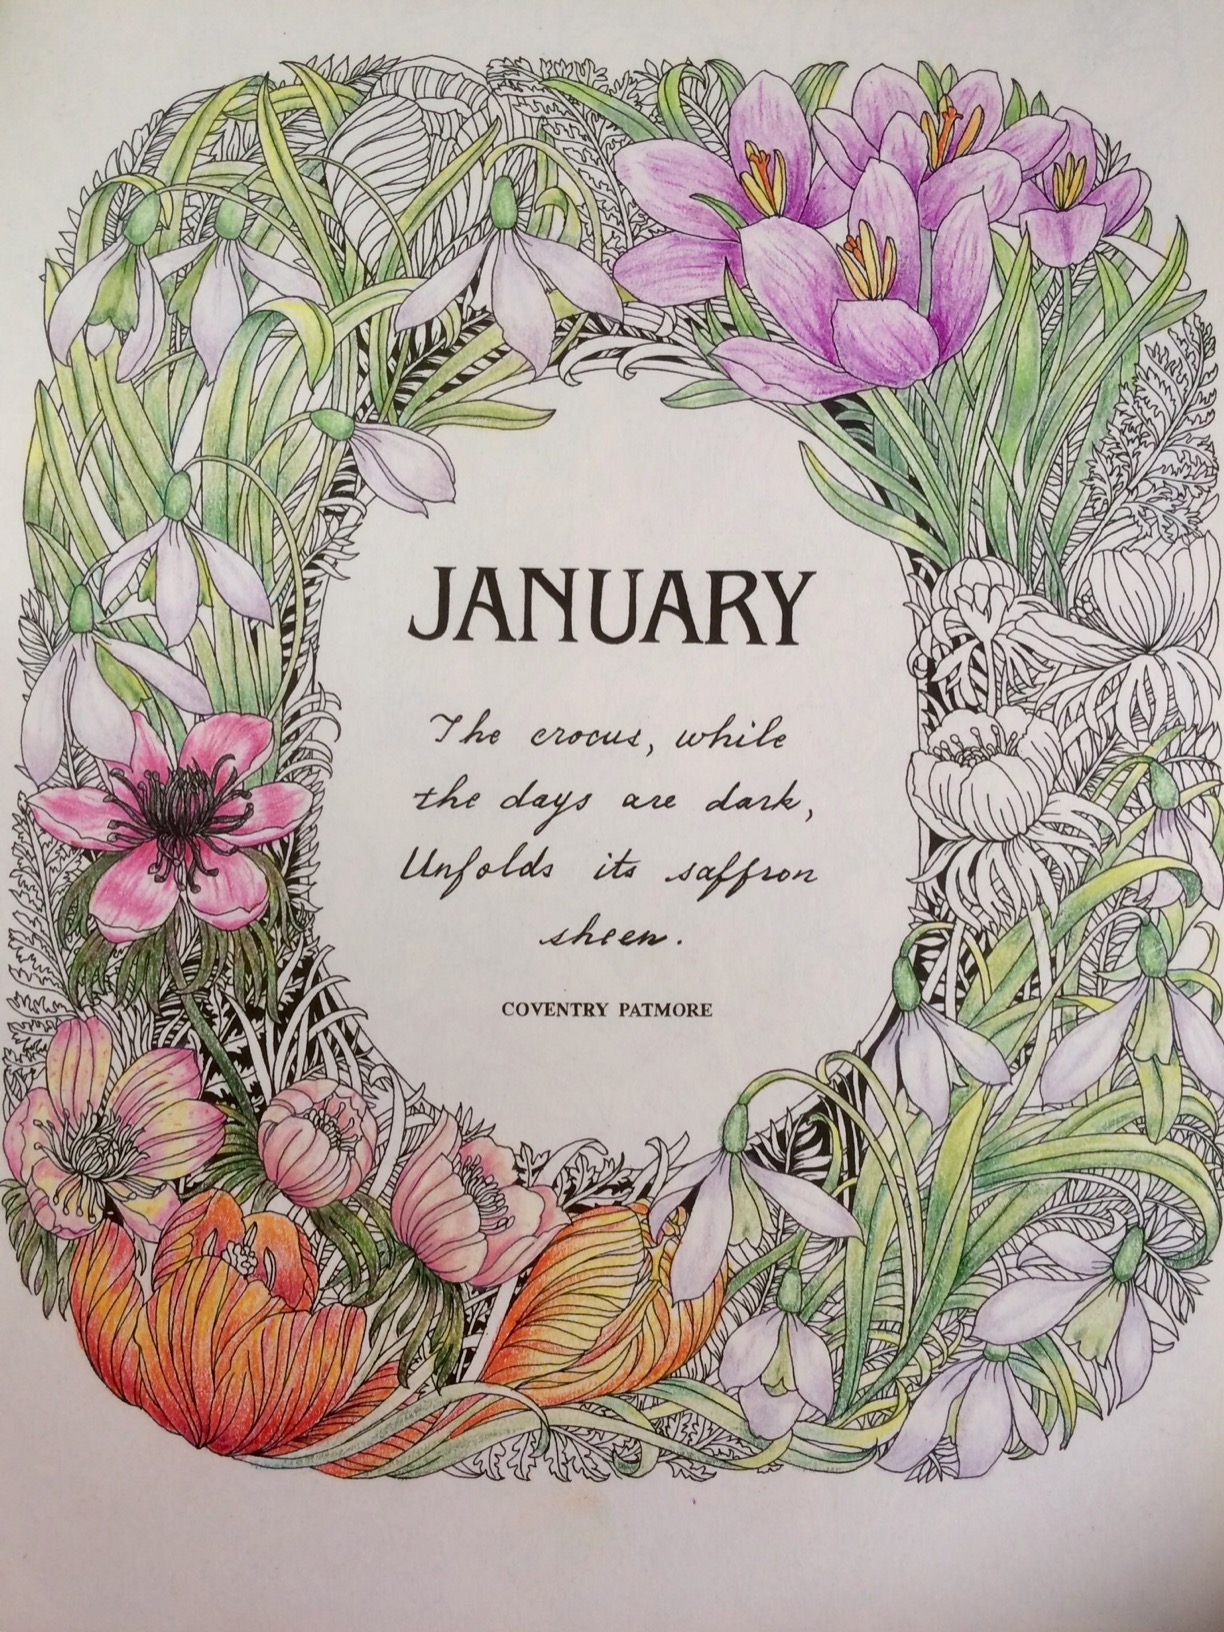 JANUARY
The crocus, while
the days are dark,
Unfolds its saffron
sheen.
COVENTRY PATMORE